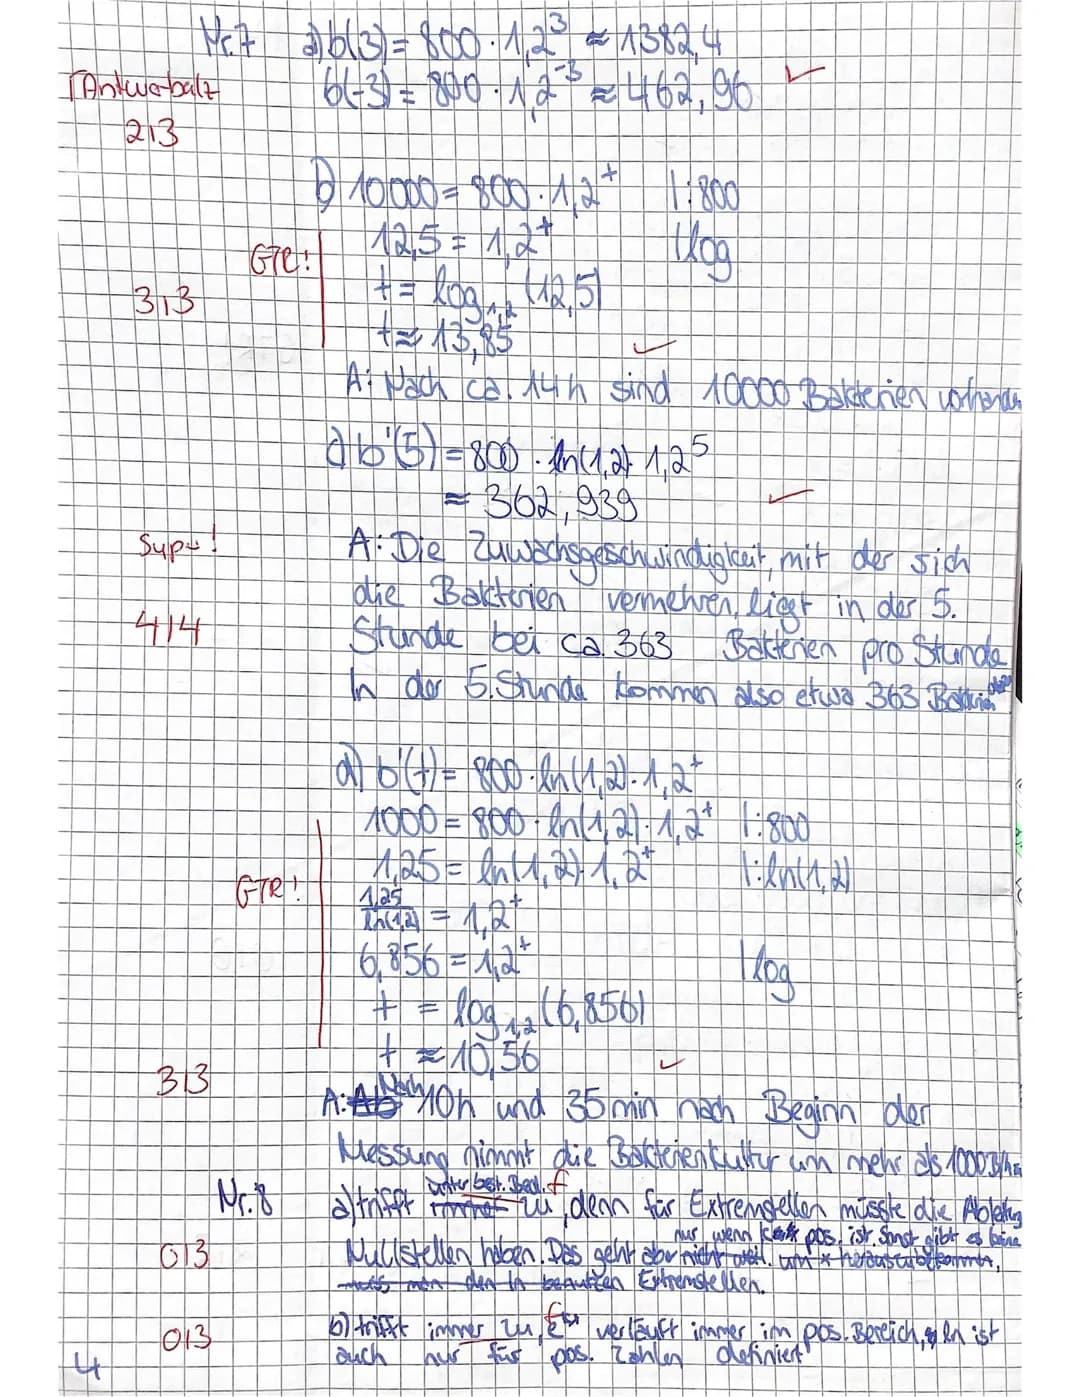 Nr.7 a) b(3) = 800 · 1,2³ ≈ 1382,4
b(-3) = 800 · 1,2⁻³ ≈ 462,96 ✓
2/3
b) 10000 = 800 · 1,2^t |:800
12,5 = 1,2^t |log
GTR!
t = log₁,₂ (12,5)
3/3
t ≈ 13,85 ✓
A: Nach ca. 14h sind 10000 Bakterien vorhanden
c) b'(5) = 800 · ln(1,2) · 1,2⁵
≈ 362,939 ✓
Super! A: Die Zuwachsgeschwindigkeit, mit der sich
die Bakterien vermehren, liegt in der 5.
4/4 Stunde bei ca. 363 Bakterien pro Stunde
In der 5. Stunde kommen also etwa 363 Bakterien
d) b'(t) = 800 · ln(1,2) · 1,2^t
1000 = 800 · ln(1,2) · 1,2^t |:800
1,25 = ln(1,2) · 1,2^t |:ln(1,2)
GTR! 1,25/ln(1,2) = 1,2^t
6,856 = 1,2^t |log
t = log₁,₂ (6,856)
t ≈ 10,56 ✓
3/3
A: Nach 10h und 35min nach Beginn der
Messung nimmt die Bakterienkultur um mehr als 1000
Nr.8 a) trifft unter best. Bed. zu, denn für Extremstellen müsste die Ableitung f
nur, wenn pos. ist. Sonst gibt es keine
0/3 Nullstellen haben. Das geht aber nicht weil, um x herauszubekommen,
muss man den ln benutzen Extremstellen.
b) trifft immer zu, f verläuft immer im pos. Bereich, ln ist
0/3 auch nur für pos. Zahlen definiert
4